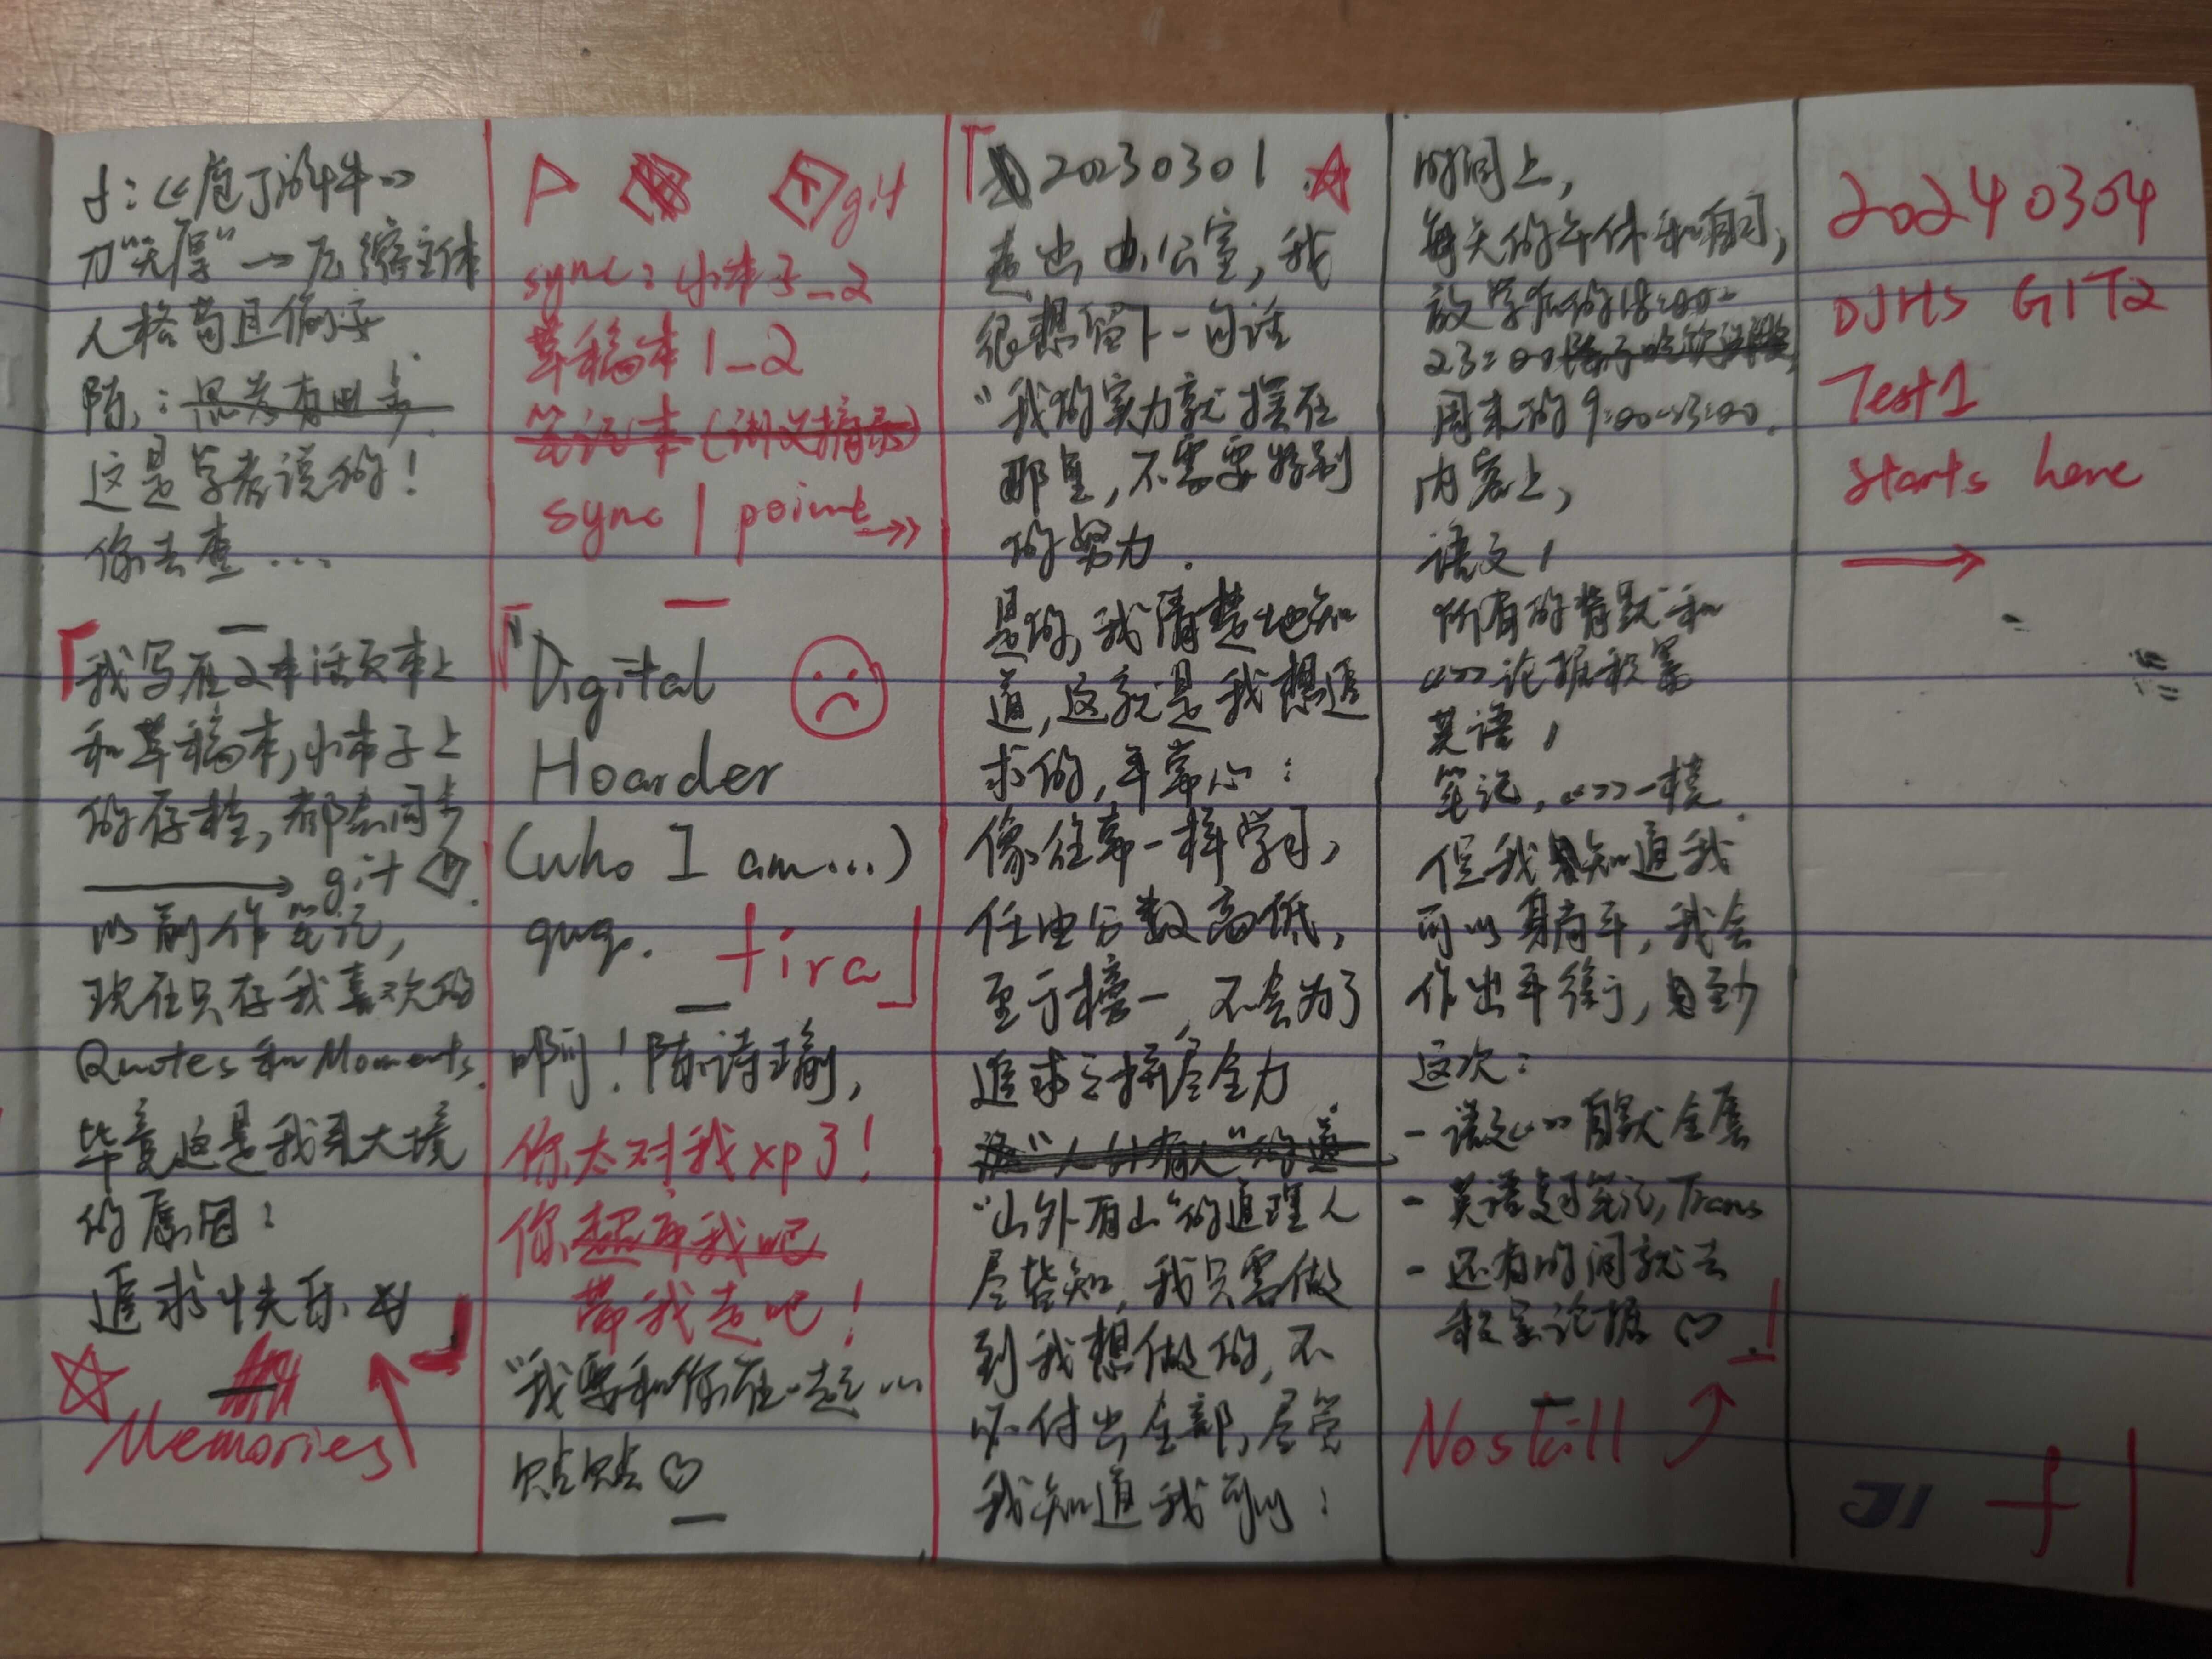 《庖丁解牛》
刀“无厚”→压缩主体
人格苟且偷安
陈:思考有出乎
这是学者说的!
你去查...
「我写在2本活页本上
和草稿本,小本子上
的存档,都去同步
git
以前作笔记,
现在只存我喜欢的
Quotes和Moments.
毕竟这是我
的原因:
追求快乐
Memories
P git
sync:小本子_2
草稿本1_2
笔记本(讲义摘录)
sync 1 point
「Digital
Hoarder
(who I am...)
quq.
tira」
啊!陈诗瑜,
你太对我xp了!
你超市我吧
带我走吧!
“我要和你在一起...
贴贴♡
「20230301
走出办公室,我
很想留下一句话
“我的实力就摆在
那里,不需要特别
的努力.
是的,我清楚地知
道,这就是我想追
求的,平常心:
像往常一样学习,
任由分数高低,
至于榜一,不会为了
追求之拼尽全力.
“人外有人”的道
“山外有山”的道理人
尽皆知,我只需做
到我想做的,不
必付出全部,尽管
我知道我可以:
时间上,
每天的午休和自习,
放学后的18:00-
23:00
周末的9:00-23:00.
内容上,
语文,
所有的背默和
《》论据积累
英语,
笔记,《》一模.
但我知道我
可以躺平,我会
作出平衡,
这次:
-语文《》自默全屡
-英语复习笔记,Trans
-还有时间就去
积累论据♡.」
No skill
20240304
DJHS GIT2
Test1
Starts here
J1